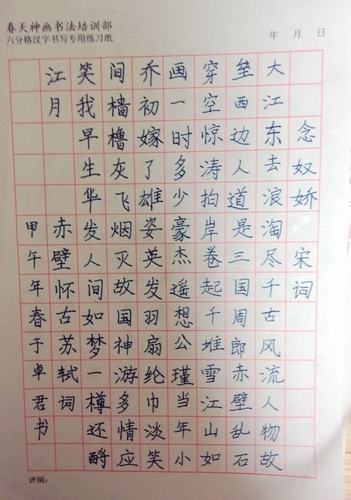 春天神画书法培训部
六分格汉字书写专用练习纸
年 月 日
念奴娇 宋词
大江东去浪淘尽千古风流人物故
垒西边人道是三国周郎赤壁乱石
穿空惊涛拍岸卷起千堆雪江山如
画一时多少豪杰遥想公瑾当年小
乔初嫁了雄姿英发羽扇纶巾淡笑
间樯橹灰飞烟灭故国神游多情应
笑我早生华发人间如梦一樽还酹
江月 赤壁怀古苏轼词
甲午年春于卓君书
评阅: